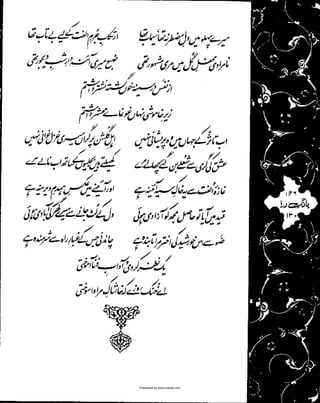 میرے پہلو میں دلِ مضطر نہ تھا، سیماب تھا
ارتکابِ جرمِ الفت کے لیے بے تاب تھا
نامرادی محفلِ گل میں مری مشہور تھی
صبح میری آئنہ دارِ شبِ دیجور تھی
از نفس در سینۂ خوں گشتہ نشتر داشتم
زیرِ خاموشی نہاں غوغائے محشر داشتم
اب تاثر کے جہاں میں وہ پریشانی نہیں
اہلِ گلشن پر گراں میری غزل خوانی نہیں
عشق کی گرمی سے شعلے بن گئے چھالے مرے
کھیلتے ہیں بجلیوں کے ساتھ اب نالے مرے
غازۂ الفت سے یہ خاکِ سیہ آئینہ ہے
اور آئینے میں عکسِ ہمدمِ دیرینہ ہے
قید میں آیا تو حاصل مجھ کو آزادی ہوئی
دل کے لٹ جانے سے میرے گھر کی آبادی ہوئی
ضو سے اس خورشید کی اختر مرا تابندہ ہے
چاندنی جس کے غبارِ راہ سے شرمندہ ہے
یک نظر کردی و آدابِ فنا آموختی
اے خنک روزے کہ خاشاکِ مرا واسوختی
۱۲۹
بانگِ درا
۱۳۰